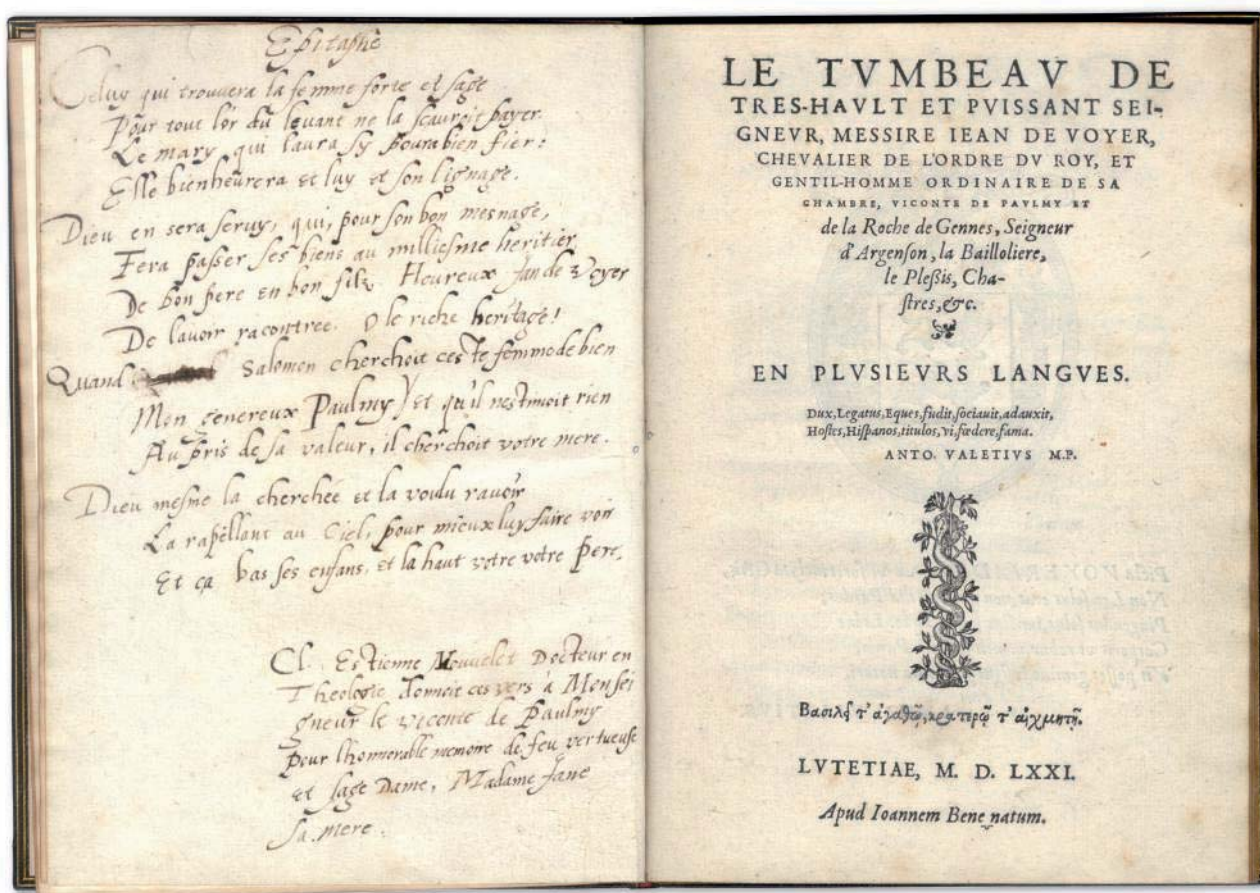 Epitaphe
Celuy qui trouvera la femme forte et sage
Pour tout lor du levant ne la scauroit payer.
Le mary qui laura sy poura bien fier:
Elle bienheurera et luy et son lignage.
Dieu en sera servy, qui, pour son bon mesnage,
Fera passer ses biens au milliesme heritier,
De bon pere en bon filz. Heureux Jan de Voyer
De lavoir racontree. O le riche heritage!
Quand Salomon cherchoit ceste femme de bien
Mon genereux Paulmy) et qu'il nestimoit rien
Au pris de sa valeur, il cherchoit votre mere.
Dieu mesme la cherchée et la voulu ravoir
La rapellant au Ciel, pour mieux luy faire voir
Et ça bas ses enfans, et la haut votre votre pere.
Cl. Estienne Nouvelet Docteur en
Theologie donnoit ces vers à Monsei
gneur le viconte de Paulmy
pour lhonnorable memoire de feu vertueuse
et sage Dame, Madame Jane
sa mere.
LE TVMBEAV DE
TRES-HAVLT ET PVISSANT SEI-
GNEVR, MESSIRE IEAN DE VOYER,
CHEVALIER DE L'ORDRE DV ROY, ET
GENTIL-HOMME ORDINAIRE DE SA
CHAMBRE, VICONTE DE PAVLMY ET
de la Roche de Gennes, Seigneur
d'Argenson, la Bailloliere,
le Plessis, Cha-
stres, &c.
EN PLVSIEVRS LANGVES.
Dux, Legatus, Eques, fudit, sociauit, adauxit,
Hostes, Hispanos, titulos, vi, fœdere, fama.
ANTO. VALETIVS M.P.
Βασιλεῖ τ' ἀγαθῷ, κρατερῷ τ' αἰχμητῇ.
LVTETIAE, M. D. LXXI.
Apud Ioannem Bene natum.